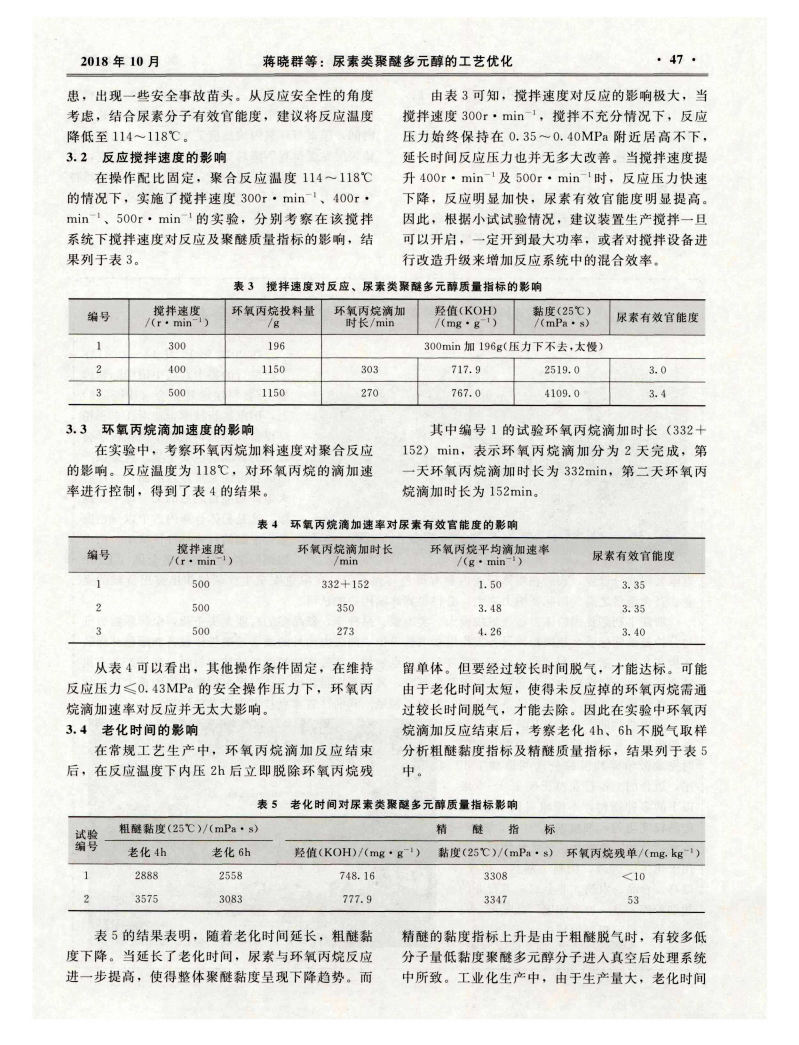 2018 年 10 月
蒋晓群等：尿素类聚醚多元醇的工艺优化
· 47 ·
患，出现一些安全事故苗头。从反应安全性的角度
考虑，结合尿素分子有效官能度，建议将反应温度
降低至 114～118℃。
3.2 反应搅拌速度的影响
在操作配比固定，聚合反应温度 114～118℃
的情况下，实施了搅拌速度 300r·min⁻¹、400r·
min⁻¹、500r·min⁻¹的实验，分别考察在该搅拌
系统下搅拌速度对反应及聚醚质量指标的影响，结
果列于表 3。
由表 3 可知，搅拌速度对反应的影响极大，当
搅拌速度 300r·min⁻¹，搅拌不充分情况下，反应
压力始终保持在 0.35～0.40MPa 附近居高不下，
延长时间反应压力也并无多大改善。当搅拌速度提
升 400r·min⁻¹及 500r·min⁻¹时，反应压力快速
下降，反应明显加快，尿素有效官能度明显提高。
因此，根据小试试验情况，建议装置生产搅拌一旦
可以开启，一定开到最大功率，或者对搅拌设备进
行改造升级来增加反应系统中的混合效率。
表 3 搅拌速度对反应、尿素类聚醚多元醇质量指标的影响
编号 搅拌速度/(r·min⁻¹) 环氧丙烷投料量/g 环氧丙烷滴加时长/min 羟值(KOH)/(mg·g⁻¹) 黏度(25℃)/(mPa·s) 尿素有效官能度
1 300 196 300min 加 196g(压力下不去,太慢)
2 400 1150 303 717.9 2519.0 3.0
3 500 1150 270 767.0 4109.0 3.4
3.3 环氧丙烷滴加速度的影响
在实验中，考察环氧丙烷加料速度对聚合反应
的影响。反应温度为 118℃，对环氧丙烷的滴加速
率进行控制，得到了表 4 的结果。
其中编号 1 的试验环氧丙烷滴加时长（332＋
152）min，表示环氧丙烷滴加分为 2 天完成，第
一天环氧丙烷滴加时长为 332min，第二天环氧丙
烷滴加时长为 152min。
表 4 环氧丙烷滴加速率对尿素有效官能度的影响
编号 搅拌速度/(r·min⁻¹) 环氧丙烷滴加时长/min 环氧丙烷平均滴加速率/(g·min⁻¹) 尿素有效官能度
1 500 332+152 1.50 3.35
2 500 350 3.48 3.35
3 500 273 4.26 3.40
从表 4 可以看出，其他操作条件固定，在维持
反应压力≤0.43MPa 的安全操作压力下，环氧丙
烷滴加速率对反应并无太大影响。
3.4 老化时间的影响
在常规工艺生产中，环氧丙烷滴加反应结束
后，在反应温度下内压 2h 后立即脱除环氧丙烷残
留单体。但要经过较长时间脱气，才能达标。可能
由于老化时间太短，使得未反应掉的环氧丙烷需通
过较长时间脱气，才能去除。因此在实验中环氧丙
烷滴加反应结束后，考察老化 4h、6h 不脱气取样
分析粗醚黏度指标及精醚质量指标，结果列于表 5
中。
表 5 老化时间对尿素类聚醚多元醇质量指标影响
试验编号 粗醚黏度(25℃)/(mPa·s) 精 醚 指 标
老化 4h 老化 6h 羟值(KOH)/(mg·g⁻¹) 黏度(25℃)/(mPa·s) 环氧丙烷残单/(mg.kg⁻¹)
1 2888 2558 748.16 3308 <10
2 3575 3083 777.9 3347 53
表 5 的结果表明，随着老化时间延长，粗醚黏
度下降。当延长了老化时间，尿素与环氧丙烷反应
进一步提高，使得整体聚醚黏度呈现下降趋势。而
精醚的黏度指标上升是由于粗醚脱气时，有较多低
分子量低黏度聚醚多元醇分子进入真空后处理系统
中所致。工业化生产中，由于生产量大，老化时间